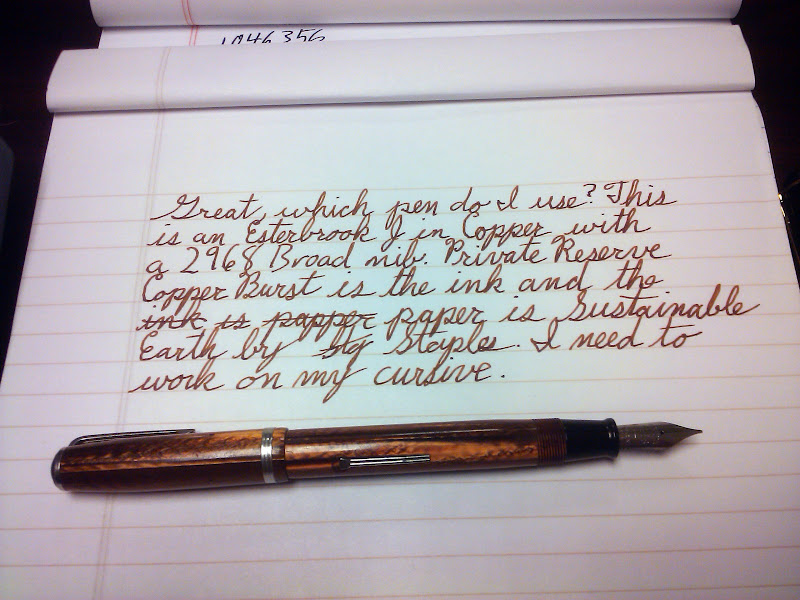 1046356
Great, which pen do I use? This
is an Esterbrook J in Copper with
a 2968 Broad nib. Private Reserve
Copper Burst is the ink and the
ink is papper paper is Sustainable
Earth by Staples. I need to
work on my cursive.